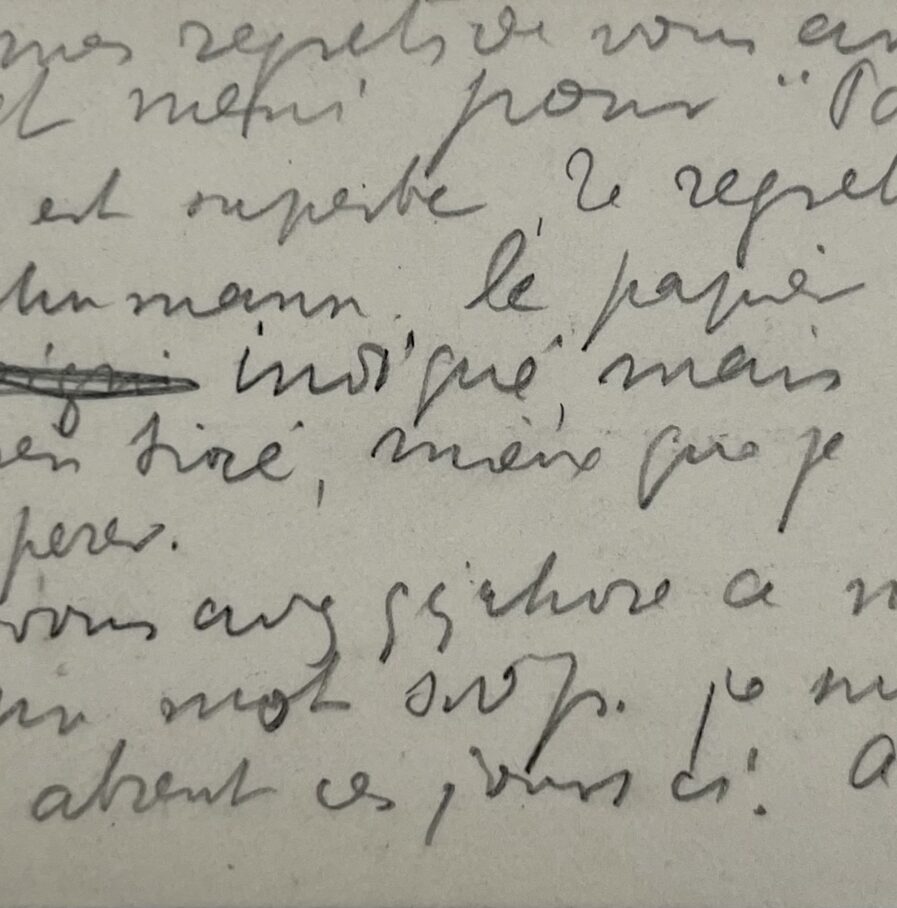 mes regrets de vous av
et merci pour "Pa
est superbe, Je regret
humann. le papier
indiqué, mais
en tiré, mieux que je
perer.
vous avez qq chose a m
un mot svp. je su
absent ces jours ci. a